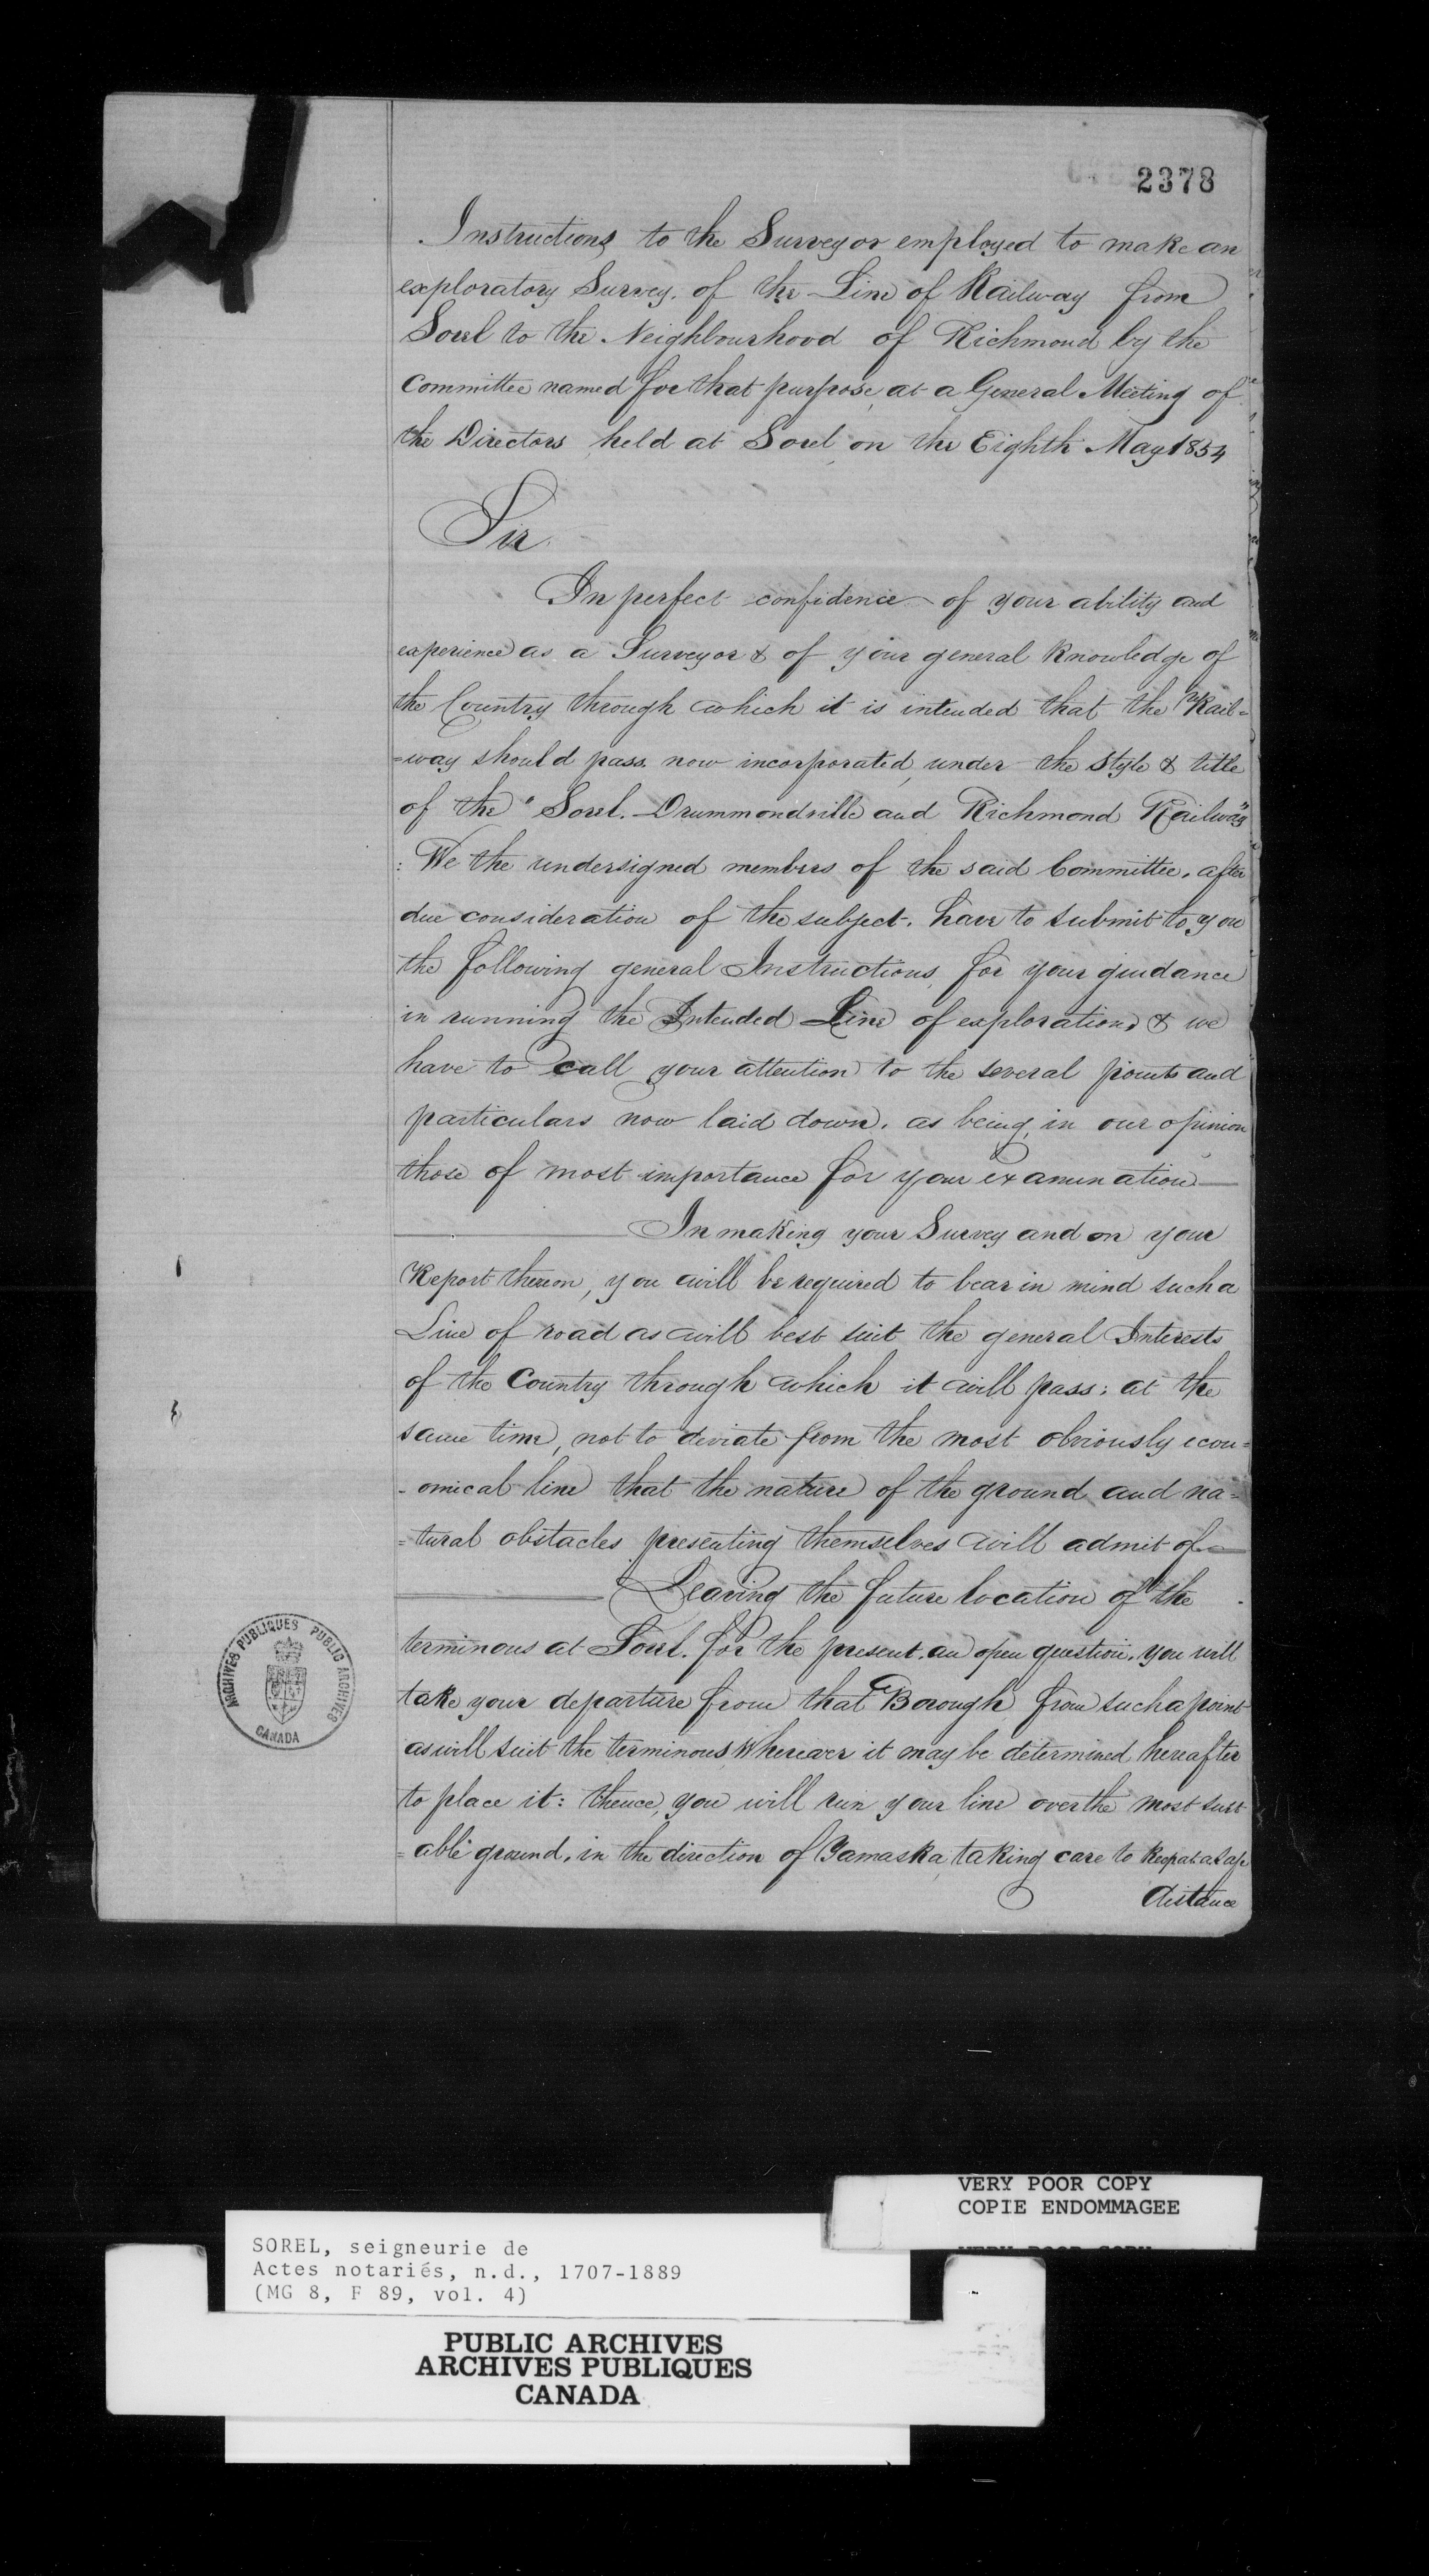 2378
Instructions to the Surveyor employed to make an
exploratory Survey. of the Line of Railway from
Sorel to the Neighbourhood of Richmond by the
Committee named for that purpose, at a General Meeting of
the Directors held at Sorel, on the Eighth May 1854
Sir.
In perfect confidence of your ability and
experience as a Surveyor & of your general Knowledge of
the Country through which it is intended that the Rail=
=way should pass. now incorporated, under the style & title
of the "Sorel. Drummondville and Richmond Railway"
: We the undersigned members of the said Committee. after
due consideration of the subject. have to submit to you
the following general Instructions, for your guidance
in running the Intended Line of exploration, & we
have to call your attention to the several points and
particulars now laid down. as being, in our opinion
those of most importance for your examination —
In making your Survey and on your
Report thereon, you will be required to bear in mind such a
Line of road as will best suit the general Interests
of the Country through which it will pass; at the
same time, not to deviate from the most obviously econ=
- omical line that the nature of the ground and na=
=tural obstacles presenting themselves will admit of —
Leaving the future location of the
terminous at Sorel. for the present. an open question. you will
take your departure from that Borough from such a point
as will suit the terminous, Whereever it may be determined hereafter
to place it: thence, you will run your line over the most suit
=able ground. in the direction of Yamaska, taking care to keep at a safe
distance
ARCHIVES PUBLIQUES PUBLIC ARCHIVES
CANADA
VERY POOR COPY
COPIE ENDOMMAGEE
VERY POOR COPY
SOREL, seigneurie de
Actes notariés, n.d., 1707-1889
(MG 8, F 89, vol. 4)
PUBLIC ARCHIVES
ARCHIVES PUBLIQUES
CANADA